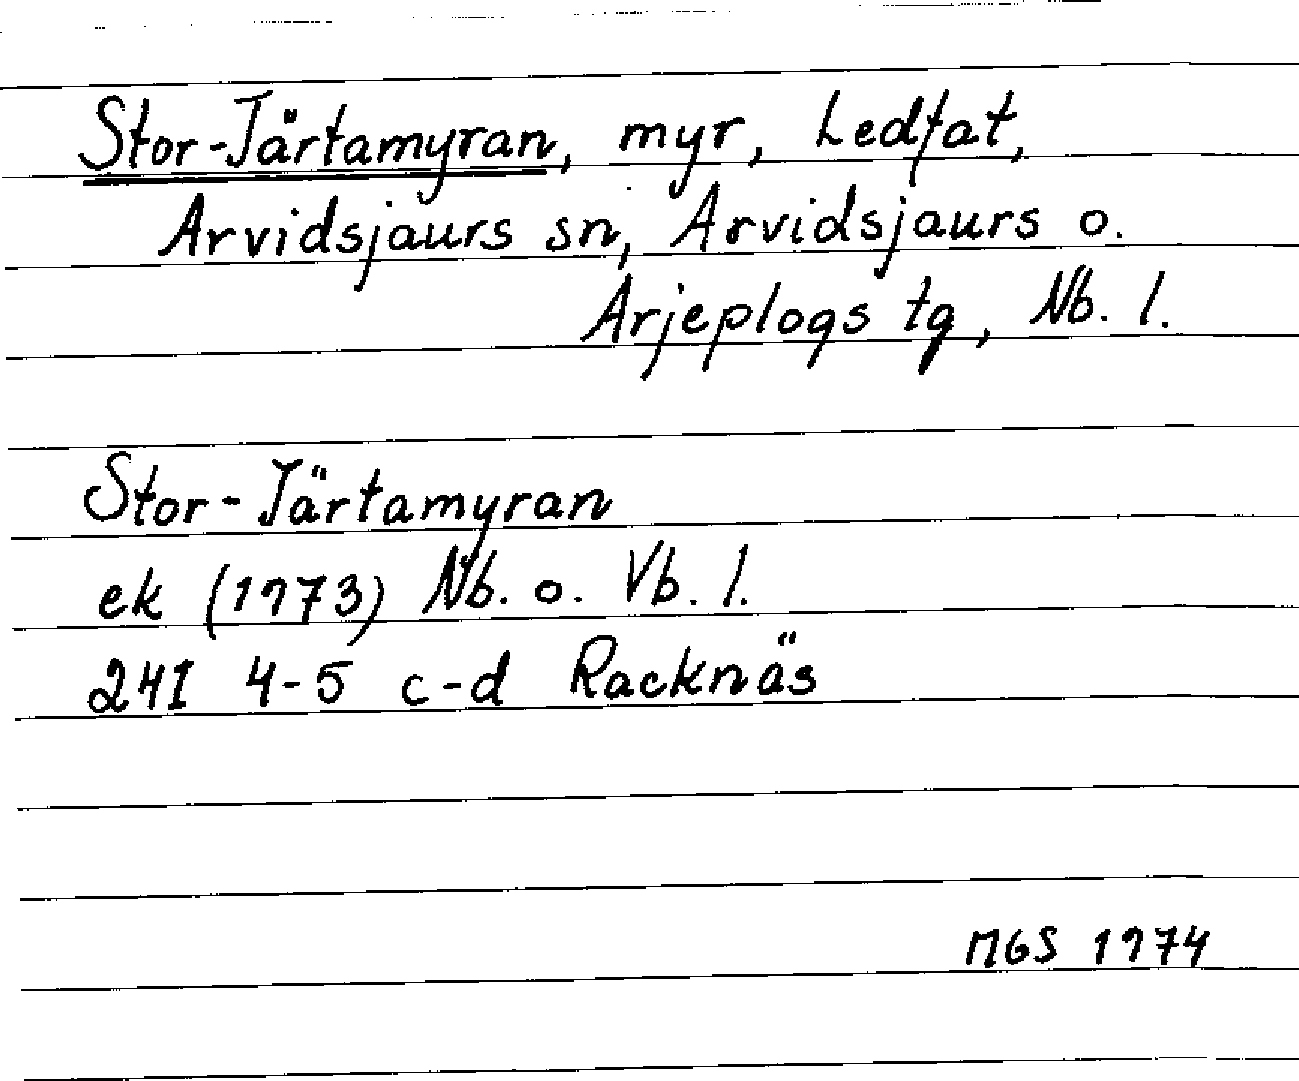 Stor-Järtamyran, myr, Ledfat,
Arvidsjaurs sn, Arvidsjaurs o.
Arjeplogs tg, Nb. l.
Stor-Järtamyran
ek (1973) Nb. o. Vb. l.
24I 4-5 c-d Racknäs
MGS 1974